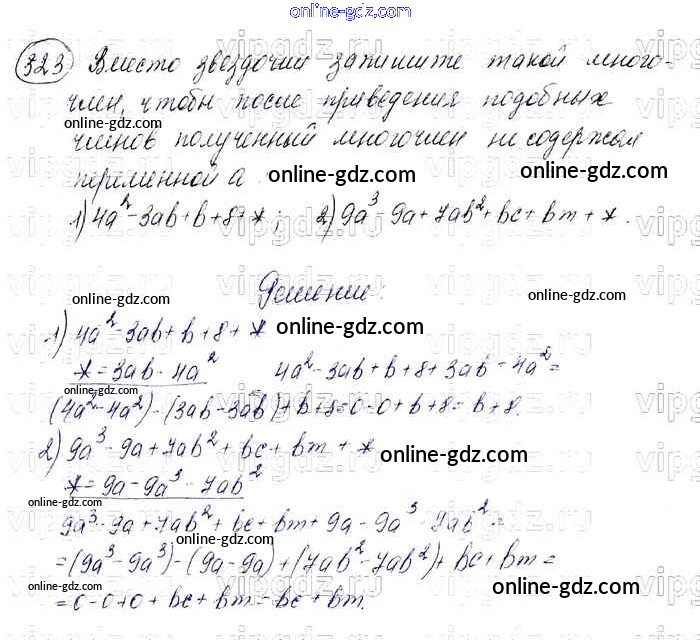 online-gdz.com
323 Вместо звездочки запишите такой много-
член, чтобы после приведения подобных
online-gdz.com
членов полученный многочлен не содержал
переменной a. online-gdz.com
1) 4a² - 3ab + b + 8 + *; 2) 9a³ - 9a + 7ab² + bc + bm + *.
Решение:
online-gdz.com online-gdz.com
1) 4a² - 3ab + b + 8 + * online-gdz.com
* = 3ab - 4a² 4a² - 3ab + b + 8 + 3ab - 4a² =
online-gdz.com
(4a² - 4a²) - (3ab - 3ab) + b + 8 = 0 - 0 + b + 8 = b + 8.
2) 9a³ - 9a + 7ab² + bc + bm + * online-gdz.com
* = 9a - 9a³ - 7ab²
online-gdz.com
9a³ - 9a + 7ab² + bc + bm + 9a - 9a³ - 7ab² =
= (9a³ - 9a³) - (9a - 9a) + (7ab² - 7ab²) + bc + bm =
online-gdz.com online-gdz.com
= 0 - 0 + 0 + bc + bm = bc + bm.
online-gdz.com